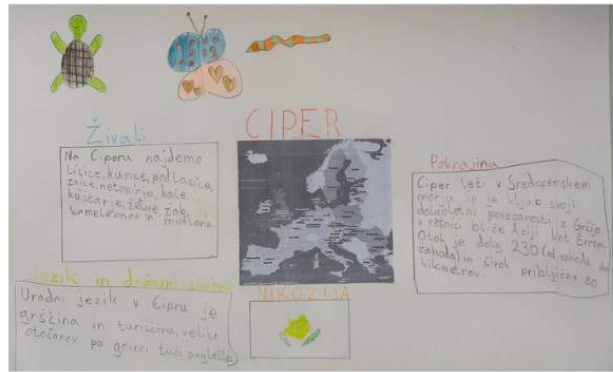 CIPER
Živali
Na Cipru najdemo
lisice, kune, podlasice,
zajce, netopirje, kače
kuščarje, želve, žabe,
kameleonov in muflona.
Pokrajina
Ciper leži v Sredozemskem
morju in je kljub svoji
dolgoletni povezanosti z Grčijo
v resnici bližje Aziji kot Evropi.
Otok je dolg 230 (od vzhoda do
zahoda) in širok približno 80
kilometrov.
Jezik in državni simboli
Uradni jezik v Cipru je
grščina in turščina, veliko
otočanov pa govori tudi angleško
NIKOZIJA